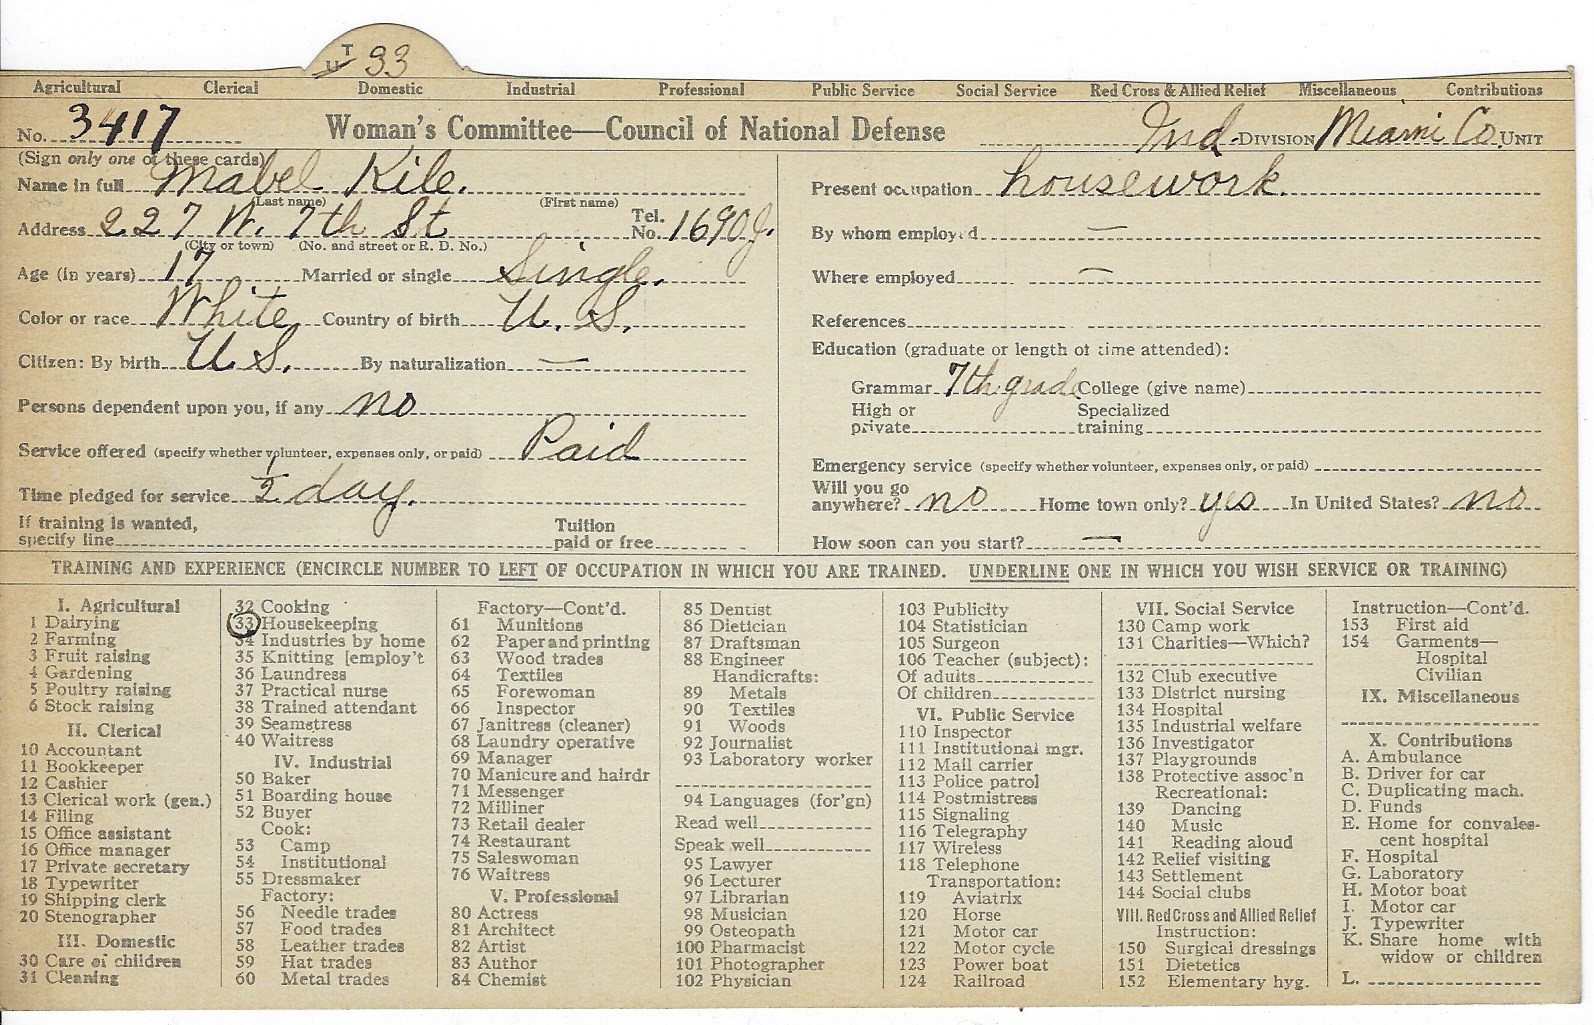 T
U 33
Agricultural Clerical Domestic Industrial Professional Public Service Social Service Red Cross & Allied Relief Miscellaneous Contributions
No. 3417 Woman's Committee—Council of National Defense Ind. DIVISION Miami Co. UNIT
(Sign only one of these cards)
Name in full Mabel Kile.
(Last name) (First name)
Address 227 W. 7th St Tel. No. 1690J.
(City or town) (No. and street or R. D. No.)
Age (in years) 17 Married or single Single.
Color or race White Country of birth U. S.
Citizen: By birth U S. By naturalization —
Persons dependent upon you, if any no
Service offered (specify whether volunteer, expenses only, or paid) Paid
Time pledged for service ½ day.
If training is wanted, specify line Tuition paid or free
Present occupation housework.
By whom employed —
Where employed —
References
Education (graduate or length of time attended):
Grammar 7th grade College (give name)
High or private Specialized training
Emergency service (specify whether volunteer, expenses only, or paid)
Will you go anywhere? no Home town only? yes In United States? no
How soon can you start? —
TRAINING AND EXPERIENCE (ENCIRCLE NUMBER TO LEFT OF OCCUPATION IN WHICH YOU ARE TRAINED. UNDERLINE ONE IN WHICH YOU WISH SERVICE OR TRAINING)
I. Agricultural
1 Dairying
2 Farming
3 Fruit raising
4 Gardening
5 Poultry raising
6 Stock raising
II. Clerical
10 Accountant
11 Bookkeeper
12 Cashier
13 Clerical work (gen.)
14 Filing
15 Office assistant
16 Office manager
17 Private secretary
18 Typewriter
19 Shipping clerk
20 Stenographer
III. Domestic
30 Care of children
31 Cleaning
32 Cooking
33 Housekeeping
34 Industries by home
35 Knitting [employ't
36 Laundress
37 Practical nurse
38 Trained attendant
39 Seamstress
40 Waitress
IV. Industrial
50 Baker
51 Boarding house
52 Buyer
Cook:
53 Camp
54 Institutional
55 Dressmaker
Factory:
56 Needle trades
57 Food trades
58 Leather trades
59 Hat trades
60 Metal trades
Factory—Cont'd.
61 Munitions
62 Paper and printing
63 Wood trades
64 Textiles
65 Forewoman
66 Inspector
67 Janitress (cleaner)
68 Laundry operative
69 Manager
70 Manicure and hairdr
71 Messenger
72 Milliner
73 Retail dealer
74 Restaurant
75 Saleswoman
76 Waitress
V. Professional
80 Actress
81 Architect
82 Artist
83 Author
84 Chemist
85 Dentist
86 Dietician
87 Draftsman
88 Engineer
Handicrafts:
89 Metals
90 Textiles
91 Woods
92 Journalist
93 Laboratory worker
94 Languages (for'gn)
Read well
Speak well
95 Lawyer
96 Lecturer
97 Librarian
98 Musician
99 Osteopath
100 Pharmacist
101 Photographer
102 Physician
103 Publicity
104 Statistician
105 Surgeon
106 Teacher (subject):
Of adults
Of children
VI. Public Service
110 Inspector
111 Institutional mgr.
112 Mail carrier
113 Police patrol
114 Postmistress
115 Signaling
116 Telegraphy
117 Wireless
118 Telephone
Transportation:
119 Aviatrix
120 Horse
121 Motor car
122 Motor cycle
123 Power boat
124 Railroad
VII. Social Service
130 Camp work
131 Charities—Which?
132 Club executive
133 District nursing
134 Hospital
135 Industrial welfare
136 Investigator
137 Playgrounds
138 Protective assoc'n
Recreational:
139 Dancing
140 Music
141 Reading aloud
142 Relief visiting
143 Settlement
144 Social clubs
VIII. Red Cross and Allied Relief
Instruction:
150 Surgical dressings
151 Dietetics
152 Elementary hyg.
Instruction—Cont'd.
153 First aid
154 Garments—
Hospital
Civilian
IX. Miscellaneous
X. Contributions
A. Ambulance
B. Driver for car
C. Duplicating mach.
D. Funds
E. Home for convales-
cent hospital
F. Hospital
G. Laboratory
H. Motor boat
I. Motor car
J. Typewriter
K. Share home with
widow or children
L.